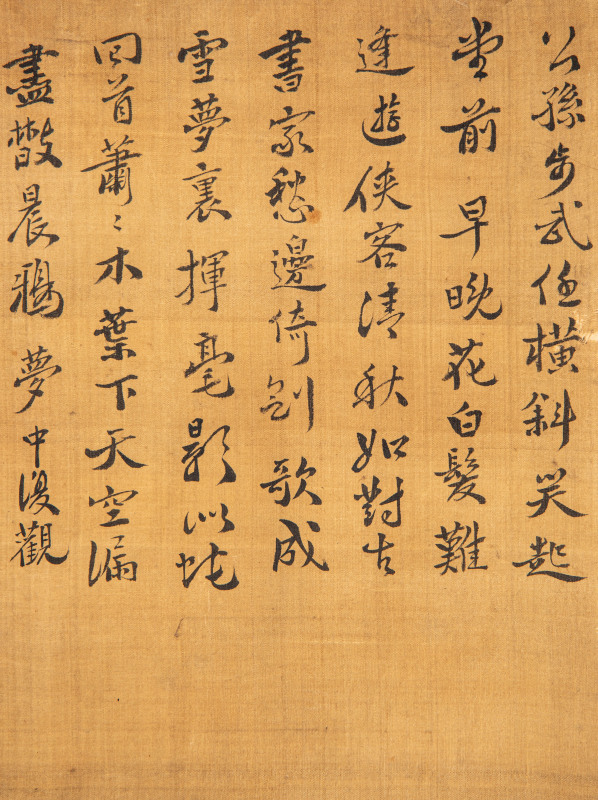 公孫步武任橫斜笑起
堂前早晚花白髮難
逢遊俠客清秋如對古
書家愁邊倚劍歌成
雪夢裏揮毫影似蛇
回首蕭〻木葉下天空漏
盡散晨鴉夢中優觀